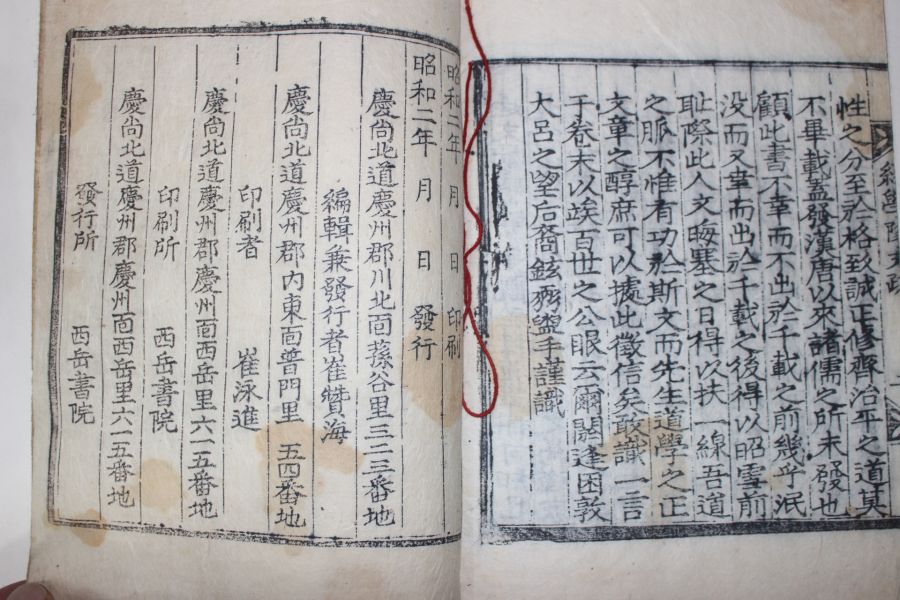 性之分至於格致誠正修齊治平之道莫
不畢載蓋發漢唐以來諸儒之所未發也
顧此書不幸而不出於千載之前幾乎泯
没而又幸而出於千載之後得以昭雪前
恥際此人文晦塞之日得以扶一線吾道
之脈不惟有功於斯文而先生道學之正
文章之醇庶可以據此徵信矣敢識一言
于卷末以竢百世之公眼云爾閼逢困敦
大呂之望后裔鉉 盥手謹識
昭和二年 月 日 印刷
昭和二年 月 日 發行
慶尙北道慶州郡川北面蓀谷里三二三番地
編輯兼發行者 崔贊海
慶尙北道慶州郡內東面普門里 五四番地
印刷者 崔泳進
慶尙北道慶州郡慶州面西岳里六一五番地
印刷所 西岳書院
慶尙北道慶州郡慶州面西岳里六一五番地
發行所 西岳書院